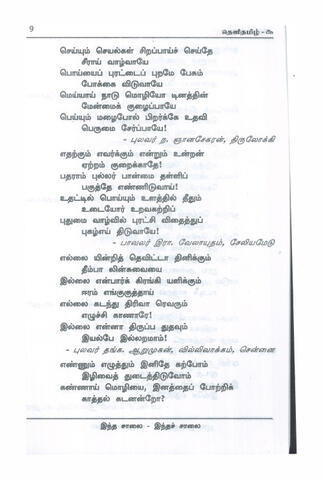 9
தெளிதமிழ் - கூ
செய்யும் செயல்கள் சிறப்பாய்ச் செய்தே
சீராய் வாழ்வாயே
பொய்யைப் புரட்டைப் புறமே பேசும்
போக்கை விடுவாயே
மெய்யாய் நாடு மொழியோ டினத்தின்
மேன்மைக் குழைப்பாயே
பெய்யும் மழைபோல் பிறர்க்கே உதவி
பெருமை சேர்ப்பாயே!
- புலவர் ந. ஞானசேகரன், திருலோக்கி
எதற்கும் எவர்க்கும் என்றும் உன்றன்
ஏற்றம் குறைக்காதே!
பதராம் புல்லர் பான்மை தள்ளிப்
பகுத்தே எண்ணிடுவாய்!
உதட்டில் பொய்யும் உளத்தில் தீதும்
உடையோர் உறவகற்றிப்
புதுமை வாழ்வில் புரட்சி விதைத்துப்
புகழ்எய் திடுவாயே!
- பாவலர் இரா. வேலாயுதம், சேலியமேடு
எல்லை யின்றித் தெவிட்டா தினிக்கும்
தீம்பா வின்சுவையை
இல்லை என்பார்க் கிரங்கி யளிக்கும்
ஈரம் எங்குகுத்தாய்
எல்லை கடந்து திரிவா ரெவரும்
எழுச்சி காணாரே!
இல்லை என்னா திருப்ப துதவும்
இயல்பே இல்லறமாம்!
- புலவர் தங்க. ஆறுமுகன், வில்லிவாக்கம், சென்னை
எண்ணும் எழுத்தும் இனிதே கற்போம்
இழிவைத் துடைத்திடுவோம்
கண்ணாய் மொழியை, இனத்தைப் போற்றிக்
காத்தல் கடனன்றோ?
இந்த சாலை - இந்தச் சாலை